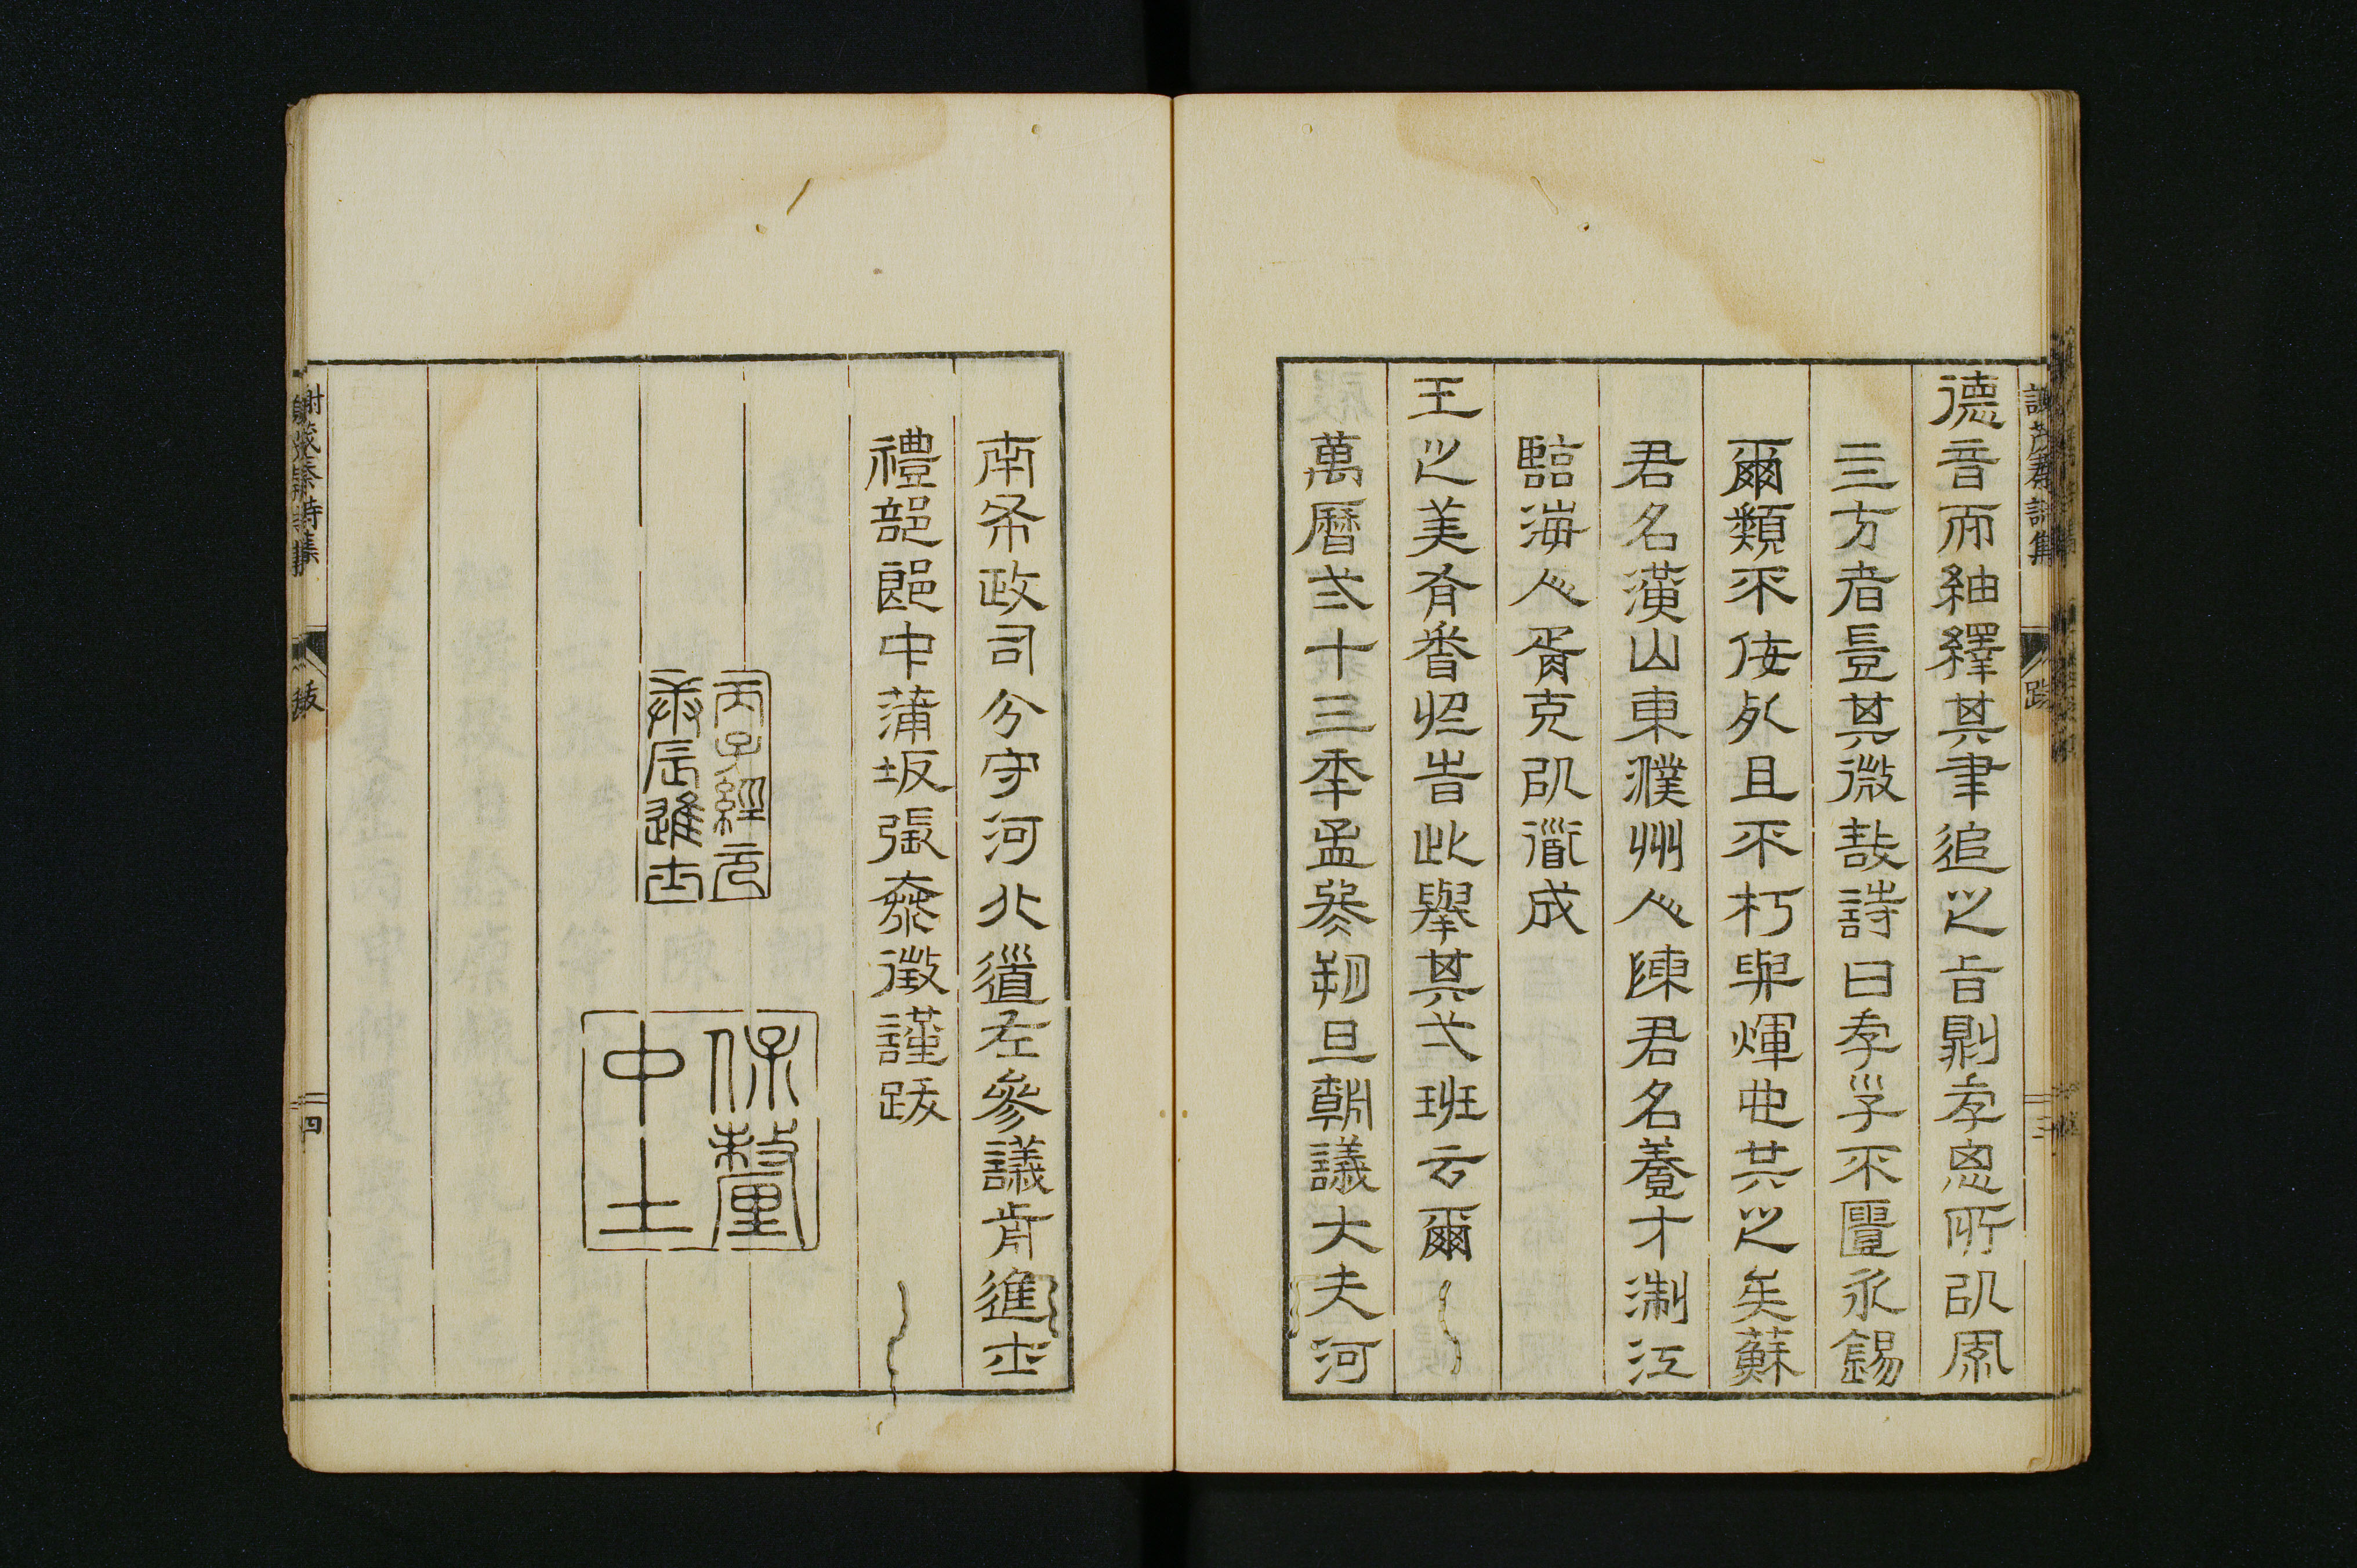 德音而紬繹其聿追之旨則孝思所以風
三方者豈其微哉詩曰孝子不匱永錫
爾類不佞於且不朽與煇也共之矣蘇
君名潢山東濮州人陳君名養才淛江
臨海人胥克以道成
王之美者香怊告此舉其弌班云爾
萬曆弍十三季孟冬朔旦朝議大夫河
南布政司分守河北道左參議前進士
禮部郎中蒲坂張泰徵謹跋
丙子經元
庚辰進士
保釐
中土
謝茂秦詩集
跋
三
謝茂秦詩集
跋
四